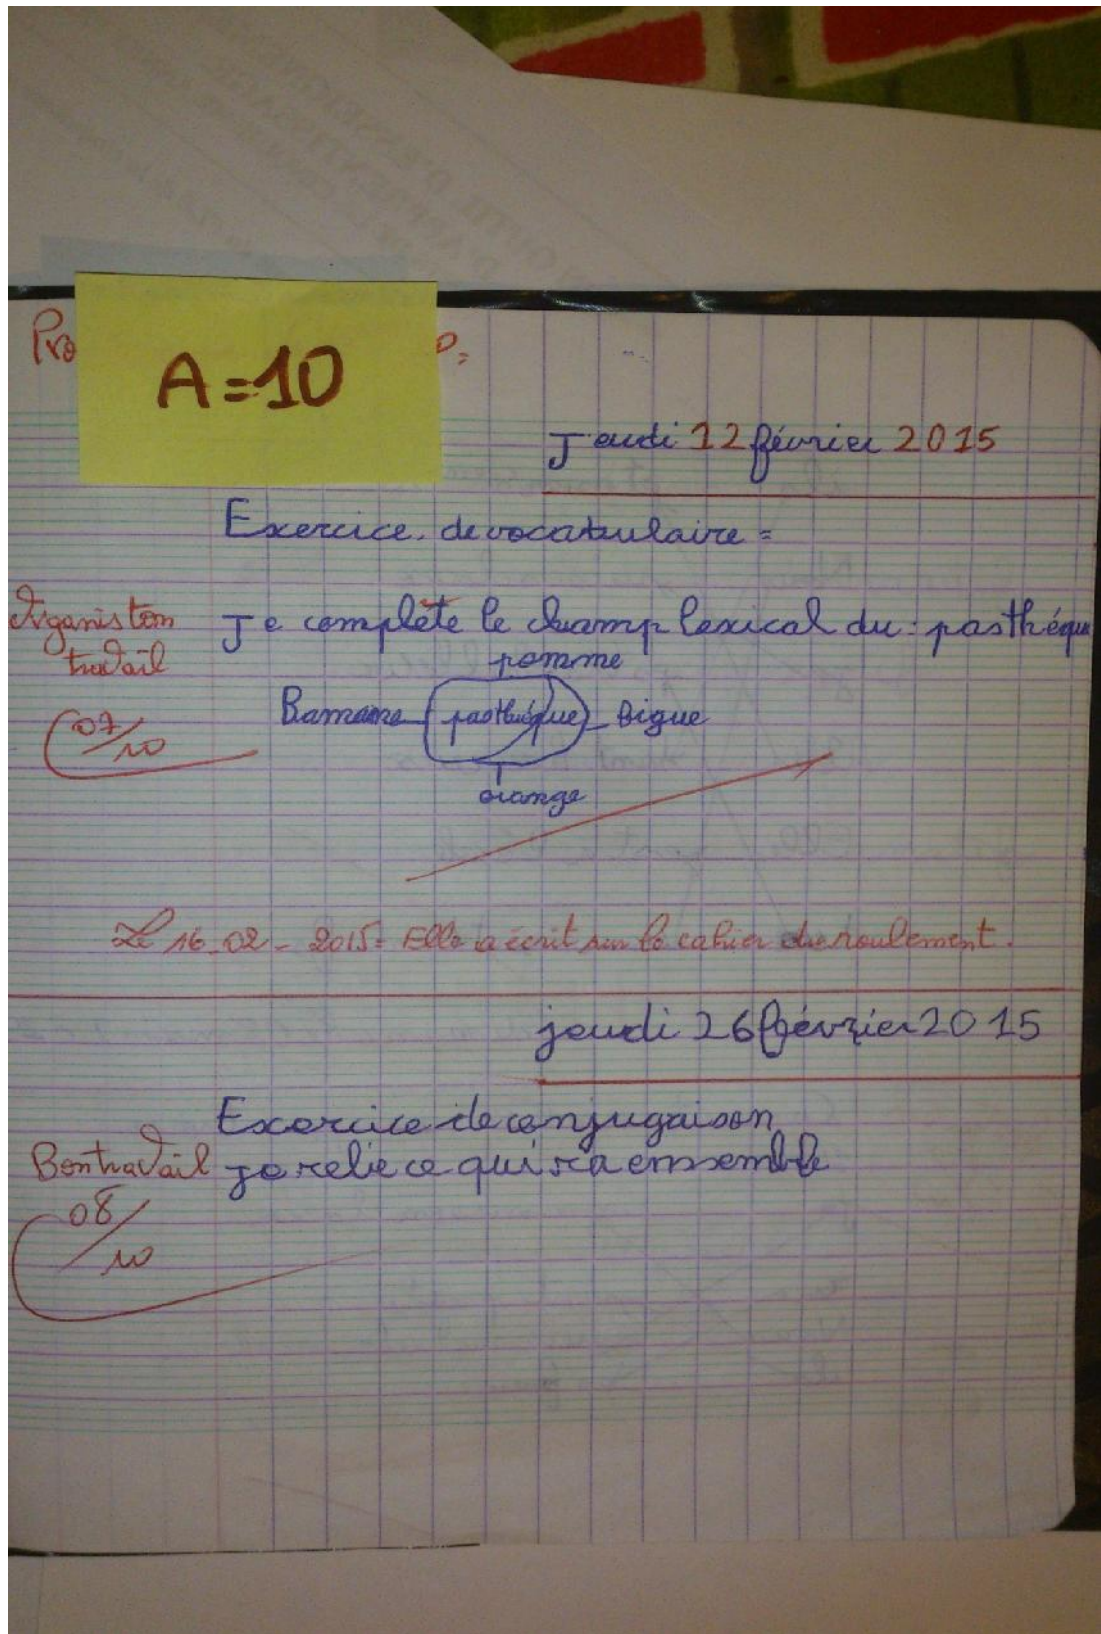 Pro
A=10
Jeudi 12 février 2015
Exercice de vocabulaire =
Organise ton
travail
Je complète le champ lexical du : pasthéque
pomme
Banane pasthéque Figue
07/10
orange
Le 16-02-2015= Elle a écrit sur le cahier du roulement.
jeudi 26 février 2015
Exercice de conjugaison
Bon travail
je relie ce qui va ensemble
08/10